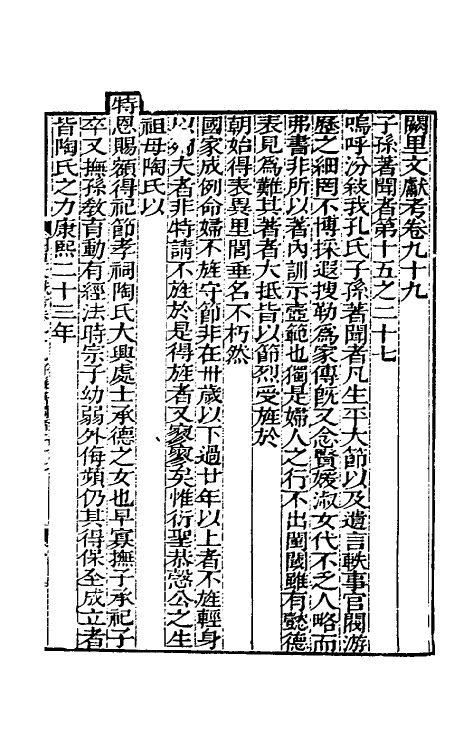 闕里文獻考卷九十九
子孫著聞者第十五之二十七
嗚呼汾敍我孔氏子孫著聞者凡生平大節以及遺言軼事官閥游
歷之細罔不博採遐搜勒為家傳旣又念賢媛淑女代不乏人略而
弗書非所以著內訓示壼範也獨是婦人之行不出閨闥雖有懿德
表見為難其著者大抵皆以節烈受旌於
朝始得表異里閭垂名不朽然
國家成例命婦不旌守節非在卅歲以下過廿年以上者不旌輕身
以 夫者非特請不旌於是得旌者又寥寥矣惟衍聖恭愨公之生
祖母陶氏以
特恩賜額得祀節孝祠陶氏大興處士承德之女也早寡撫子承祀子
卒又撫孫敎育動有經法時宗子幼弱外侮頻仍其得保全成立者
皆陶氏之力康熙二十三年